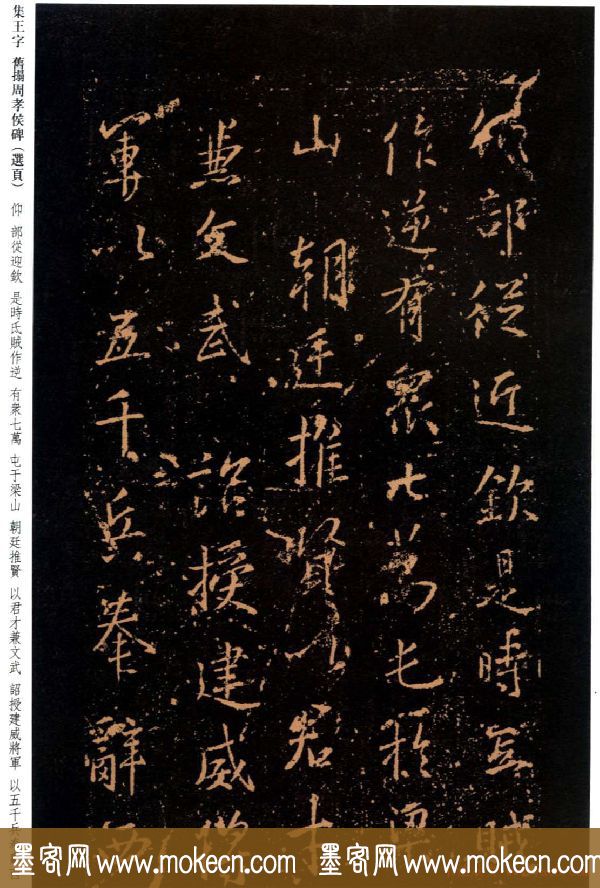 集王字 舊搨周孝侯碑(選頁) 仰 部從迎欽 是時氐賊作逆 有衆七萬 屯于梁山 朝廷推賢 以君才兼文武 詔授建威將軍 以五千兵
部從近欽是時氐賊
作逆有衆七萬屯於梁
山 朝廷推賢以君才
兼文武 詔授建威將
軍以五千兵奉辭西
墨客网 www.mokecn.com 墨客网 www.mokecn.com